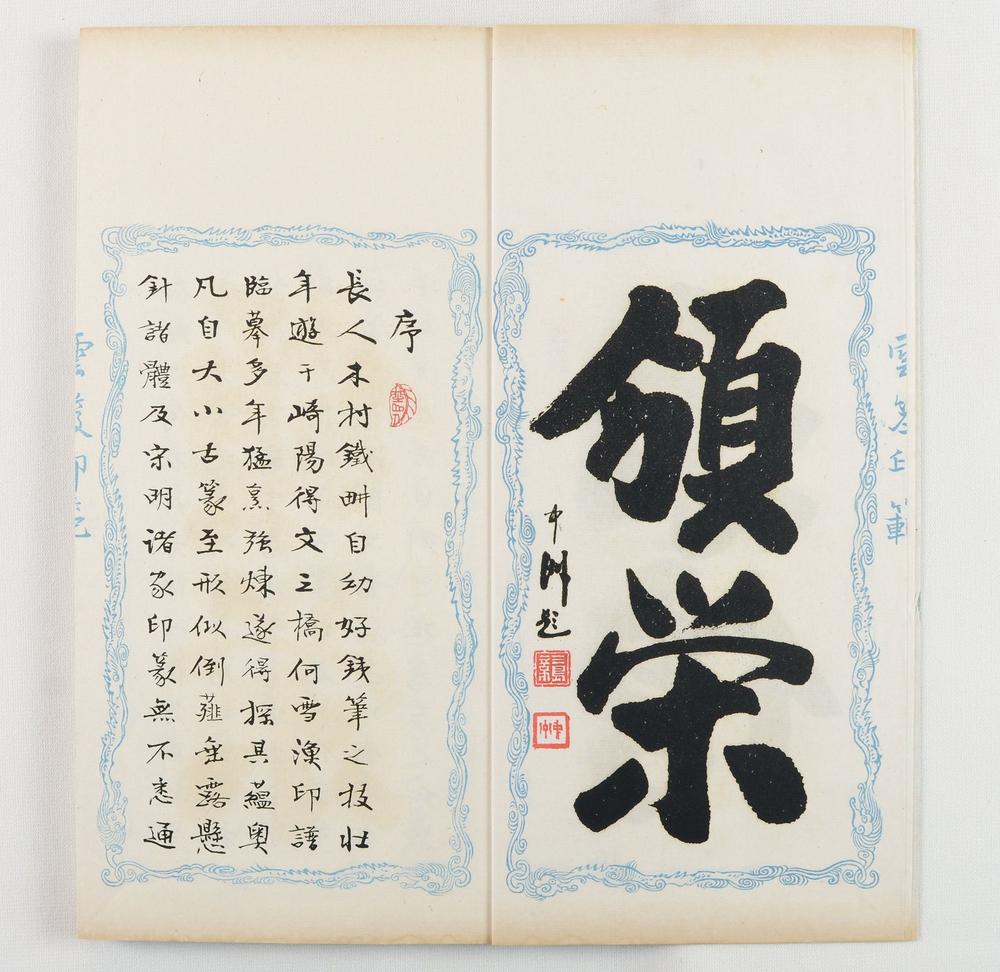 雲篆印範
頒栄
中洲題
序
長人木村鐵畊自幼好鉄筆之技壯
年遊于崎陽得文三橋何雪漁印譜
臨摹多年猛烹強煉遂得探其蘊奥
凡自大小古篆至形似倒薤垂露懸
針諸體及宋明諸家印篆無不悉通
雲篆印範